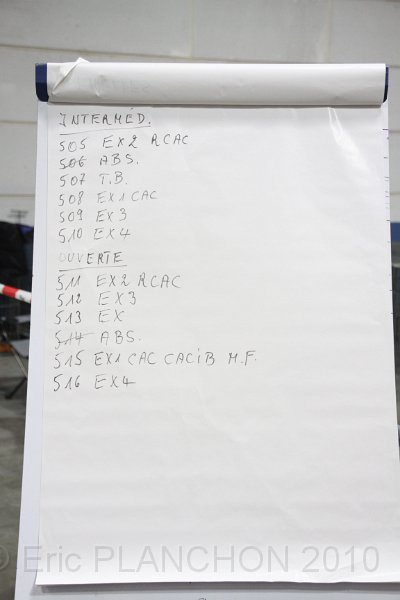 INTERMÉD.
505 EX2 RCAC
506 ABS.
507 T.B.
508 EX1 CAC
509 EX3
510 EX4
OUVERTE
511 EX2 RCAC
512 EX3
513 EX
514 ABS.
515 EX1 CAC CACiB M.F.
516 EX4
© Eric PLANCHON 2010